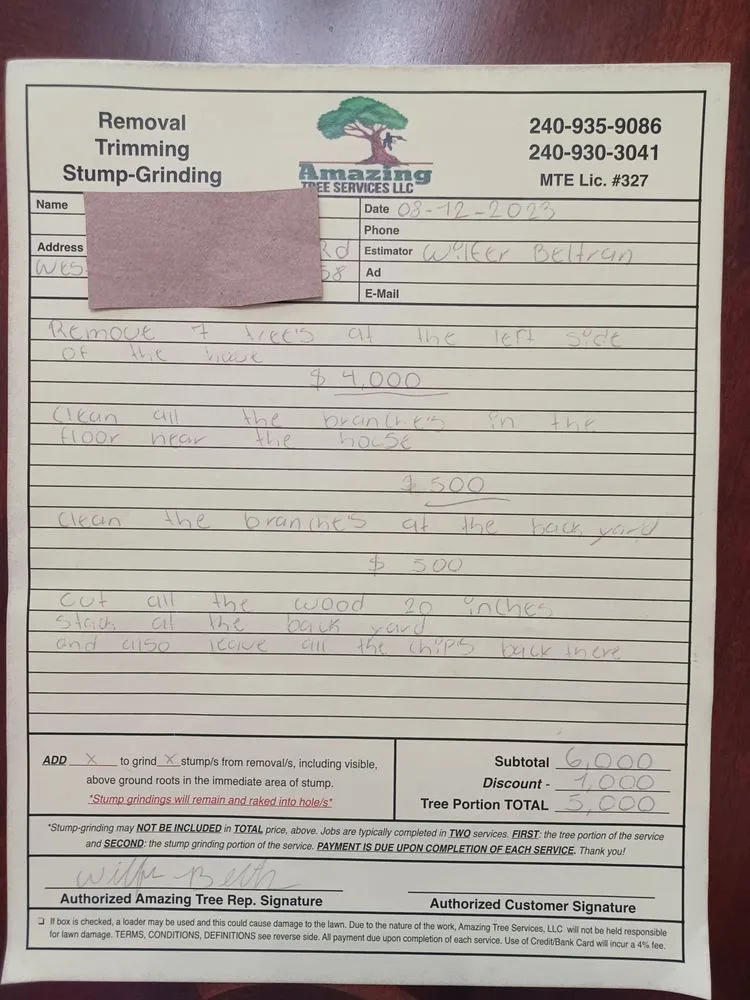 Removal
Trimming
Stump-Grinding
Amazing
TREE SERVICES LLC
240-935-9086
240-930-3041
MTE Lic. #327
Name
Date 08-12-2023
Phone
Address Rd
Estimator Wilfer Beltran
Wes 58
Ad
E-Mail
Remove 7 tree's at the left side
of the house
$ 4,000
Clean all the branche's in the
floor near the house
$ 500
Clean the branche's at the back yard
$ 500
Cut all the wood 20 inches
stack at the back yard
and also leave all the chips back there
ADD X to grind X stump/s from removal/s, including visible,
above ground roots in the immediate area of stump.
*Stump grindings will remain and raked into hole/s*
Subtotal 6,000
Discount - 1,000
Tree Portion TOTAL 5,000
*Stump-grinding may NOT BE INCLUDED in TOTAL price, above. Jobs are typically completed in TWO services. FIRST: the tree portion of the service
and SECOND: the stump grinding portion of the service. PAYMENT IS DUE UPON COMPLETION OF EACH SERVICE. Thank you!
Authorized Amazing Tree Rep. Signature
Authorized Customer Signature
❏ If box is checked, a loader may be used and this could cause damage to the lawn. Due to the nature of the work, Amazing Tree Services, LLC will not be held responsible
for lawn damage. TERMS, CONDITIONS, DEFINITIONS see reverse side. All payment due upon completion of each service. Use of Credit/Bank Card will incur a 4% fee.